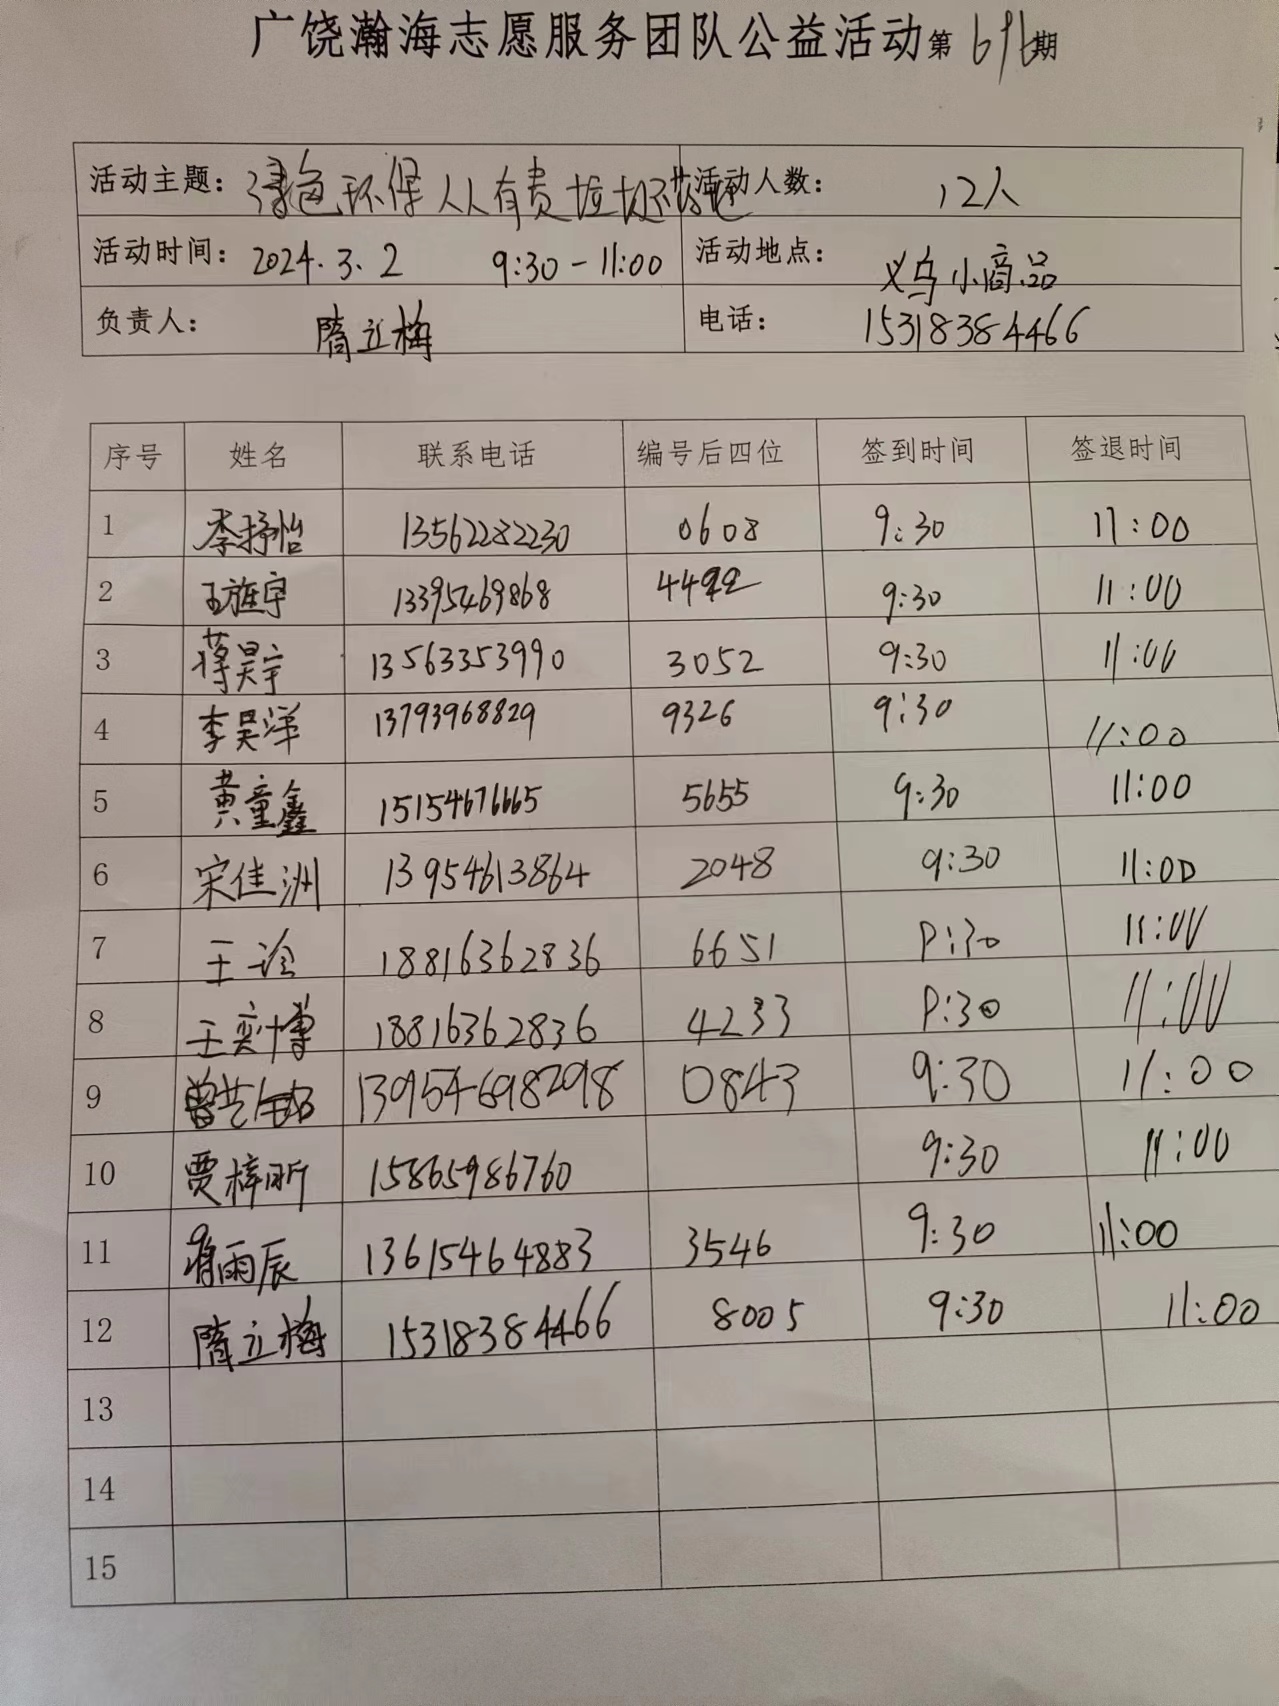 广饶瀚海志愿服务团队公益活动第 期
活动主题: 绿色环保人人有责垃圾不落地 活动人数: 12人
活动时间: 2024.3.2 9:30-11:00 活动地点: 义乌小商品
负责人: 隋立梅 电话: 15318384466
序号 姓名 联系电话 编号后四位 签到时间 签退时间
1 李抒怡 13562282230 0608 9:30 11:00
2 王旌宇 13395469868 9:30 11:00
3 蒋昊宇 13563353990 3052 9:30 11:00
4 李昊洋 13793968829 9326 9:30 11:00
5 黄童鑫 15154676665 5655 9:30 11:00
6 宋佳洲 13954613864 2048 9:30 11:00
7 王 18816362836 6651 9:30 11:00
8 王奕博 18816362836 4233 9:30 11:00
9 13954698298 0843 9:30 11:00
10 贾梓昕 15865986760 9:30 11:00
11 雨辰 13615464883 3546 9:30 11:00
12 隋立梅 15318384466 8005 9:30 11:00
13
14
15